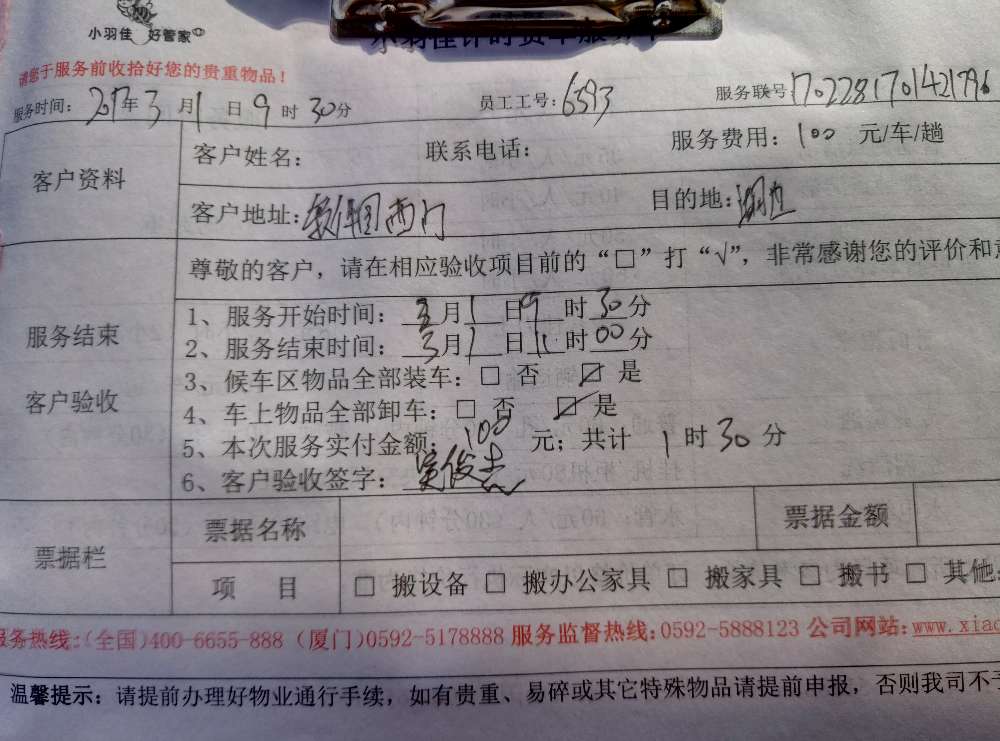 小羽佳 好管家
小羽佳计时货车服务单
请您于服务前收拾好您的贵重物品！
服务时间：2017年3月1日9时30分 员工工号：6593 服务联号：1702281701421796
客户资料
客户姓名： 联系电话： 服务费用：100 元/车/趟
客户地址：软件园西门 目的地：湖边
尊敬的客户，请在相应验收项目前的“□”打“√”，非常感谢您的评价和
服务结束
客户验收
1、服务开始时间：3月1日9时30分
2、服务结束时间：3月1日11时00分
3、候车区物品全部装车：□ 否 ☑ 是
4、车上物品全部卸车：□ 否 ☑ 是
5、本次服务实付金额：100 元；共计 1时30分
6、客户验收签字：吴俊杰
票据栏
票据名称 票据金额
项 目 □ 搬设备 □ 搬办公家具 □ 搬家具 □ 搬书 □ 其他：
服务热线：(全国)400-6655-888 (厦门)0592-5178888 服务监督热线：0592-5888123 公司网站：www.xiao
温馨提示：请提前办理好物业通行手续，如有贵重、易碎或其它特殊物品请提前申报，否则我司不予